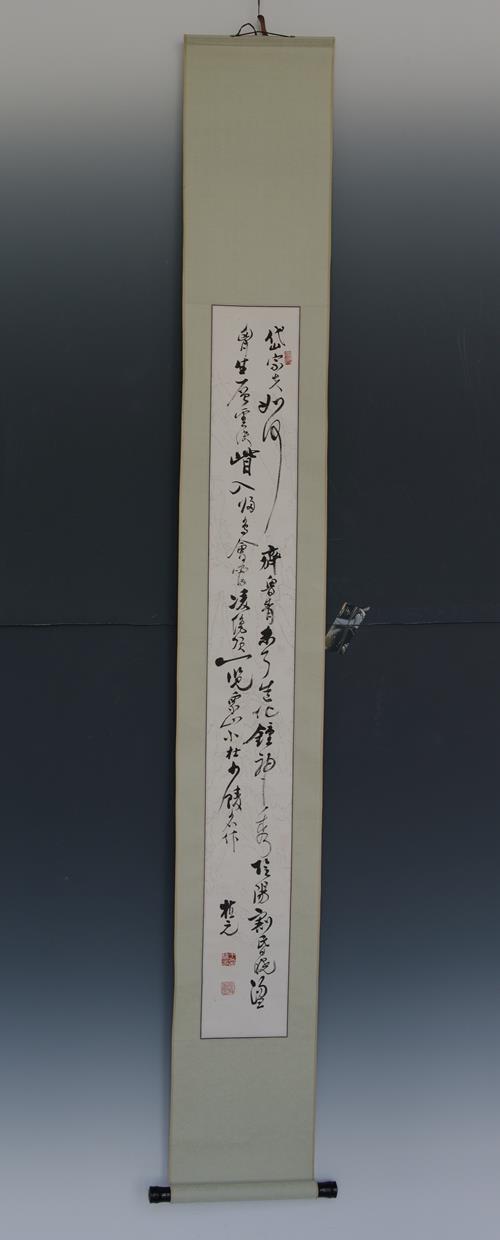 岱宗夫如何齊魯青未了造化鍾神秀陰陽割昏曉盪
胸生層雲決眥入歸鳥會當凌絕頂一覽眾山小杜少陵名作
植元